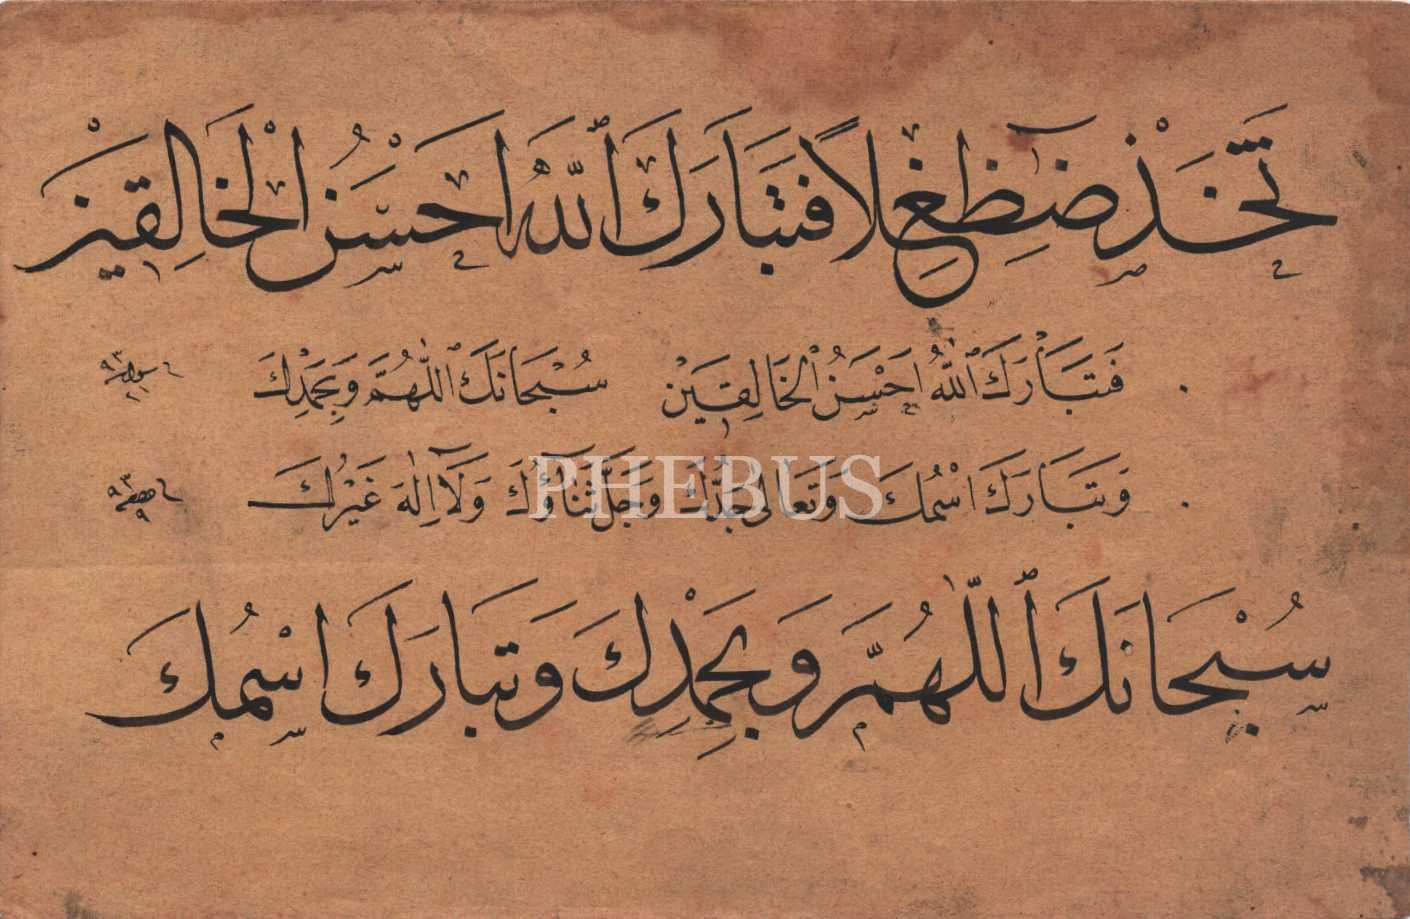 ثَخَّذٌ ضَظِغٌ لًا فَتَبَارَكَ ٱللّٰهُ اَحْسَنُ الْخَالِقِيْنَ
فَتَبَارَكَ ٱللّٰهُ اَحْسَنُ الْخَالِقِيَنْ سُبْحَانَكَ ٱللّٰهُمَّ وَبِحَمْدِكَ
PHEBUS
وَتَبَارَكَ اسْمُكَ وَتَعَالٰى جَدُّكَ وَجَلَّ ثَنَاؤُكَ وَلَآ اِلٰهَ غَيْرُكَ
سُبْحَانَكَ ٱللّٰهُمَّ وَبِحَمْدِكَ وَتَبَارَكَ اسْمُكَ